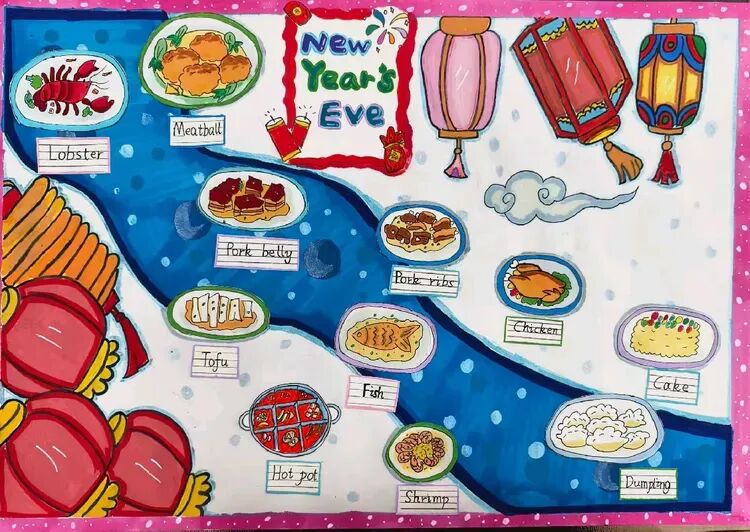 New
Year's
Eve
Lobster
Meatball
Pork belly
Pork ribs
Chicken
Tofu
Fish
Cake
Hot pot
Shrimp
Dumpling